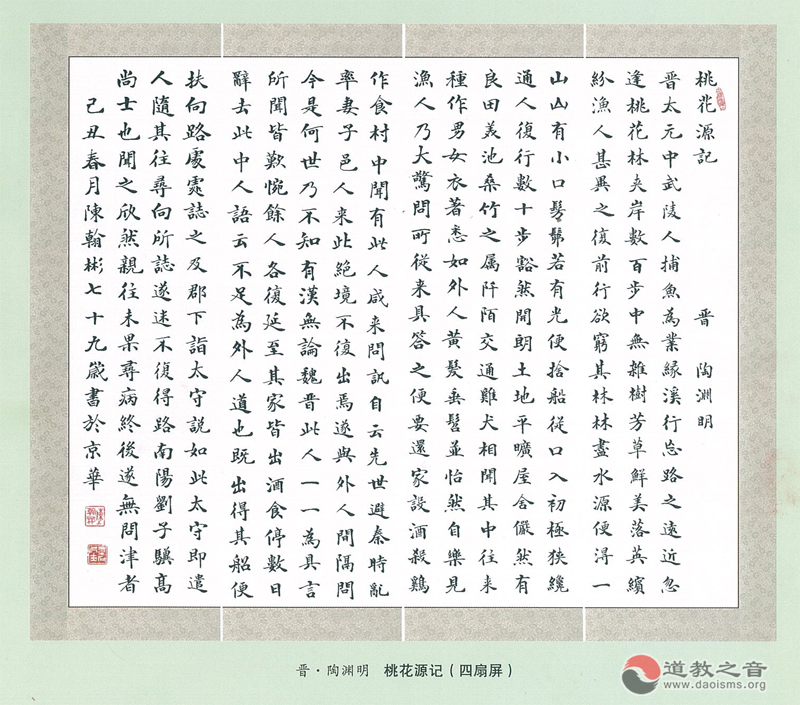 桃花源記 晉 陶淵明
晉太元中武陵人捕魚為業緣溪行忘路之遠近忽
逢桃花林夾岸數百步中無雜樹芳草鮮美落英繽
紛漁人甚異之復前行欲窮其林林盡水源便得一
山山有小口髣髴若有光便捨船從口入初極狹纔
通人復行數十步豁然開朗土地平曠屋舍儼然有
良田美池桑竹之属阡陌交通雞犬相聞其中往来
種作男女衣著悉如外人黃髮垂髫並怡然自樂見
漁人乃大驚問所從来具答之便要還家設酒殺鷄
作食村中聞有此人咸来問訊自云先世避秦時亂
率妻子邑人来此絕境不復出焉遂與外人間隔問
今是何世乃不知有漢無論魏晉此人一一為具言
所聞皆歎惋餘人各復延至其家皆出酒食停數日
辭去此中人語云不足為外人道也既出得其船便
扶向路處處誌之及郡下詣太守説如此太守即遣
人隨其往尋向所誌遂迷不復得路南陽劉子驥高
尚士也聞之欣然親往未果尋病終後遂無問津者
己丑春月陳翰彬七十九歲書於京華
晋·陶渊明 桃花源记（四扇屏）
道教之音
www.daoisms.org